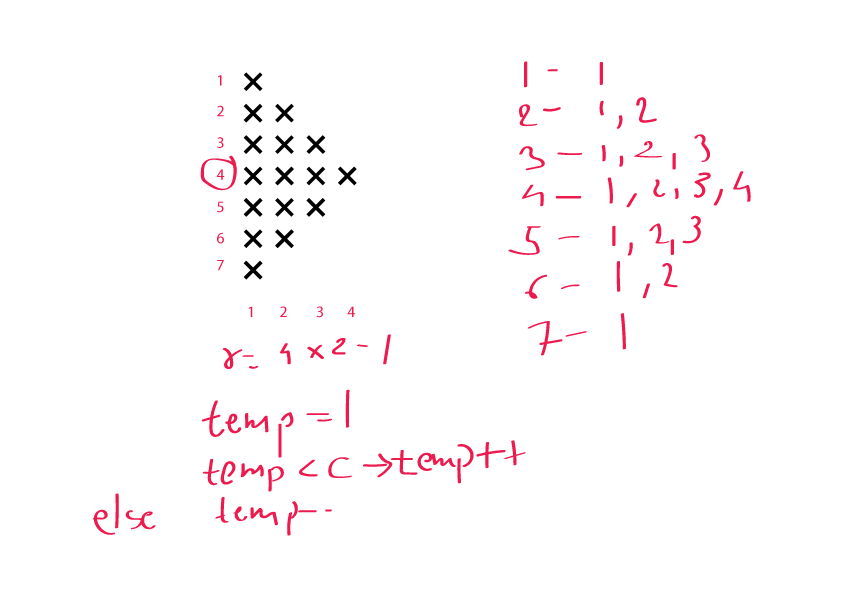 1 ×
2 × ×
3 × × ×
4 × × × ×
5 × × ×
6 × ×
7 ×
1 2 3 4
r= 4 × 2 - 1
temp = 1
temp < C → temp++
else temp--
1 - 1
2 - 1, 2
3 - 1, 2, 3
4 - 1, 2, 3, 4
5 - 1, 2, 3
6 - 1, 2
7 - 1